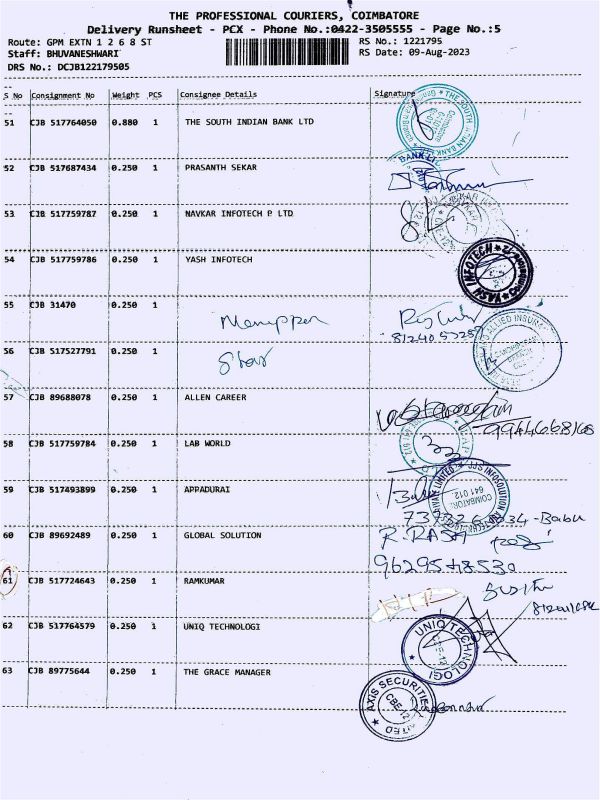 THE PROFESSIONAL COURIERS, COIMBATORE
Delivery Runsheet - PCX - Phone No.:0422-3505555 - Page No.:5
Route: GPM EXTN 1 2 6 8 ST RS No.: 1221795
Staff: BHUVANESHWARI RS Date: 09-Aug-2023
DRS No.: DCJB122179505
S No Consignment No Weight PCS Consignee Details Signature
51 CJB 517764050 0.880 1 THE SOUTH INDIAN BANK LTD
52 CJB 517687434 0.250 1 PRASANTH SEKAR
53 CJB 517759787 0.250 1 NAVKAR INFOTECH P LTD
54 CJB 517759786 0.250 1 YASH INFOTECH
YASH INFOTECH
55 CJB 31470 0.250 1
56 CJB 517527791 0.250 1 Star
57 CJB 89688078 0.250 1 ALLEN CAREER
9944668168
58 CJB 517759784 0.250 1 LAB WORLD
59 CJB 517493899 0.250 1 APPADURAI
JJS INFOSOLUTION
COIMBATORE
641 012.
60 CJB 89692489 0.250 1 GLOBAL SOLUTION
9629548530
61 CJB 517724643 0.250 1 RAMKUMAR
62 CJB 517764579 0.250 1 UNIQ TECHNOLOGI
UNIQ TECHNOLOGI
63 CJB 89775644 0.250 1 THE GRACE MANAGER
AXIS SECURITIES
CBE-12